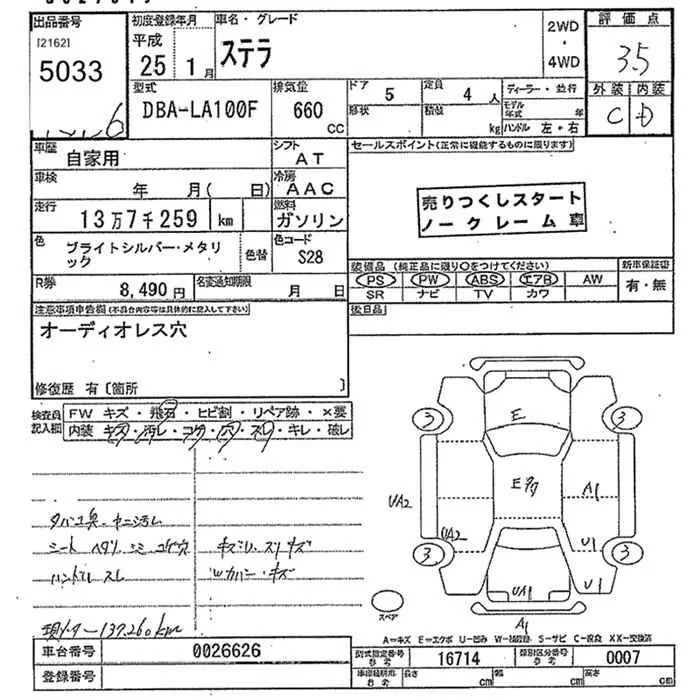 出品番号
[2162]
5033
6
初度登録年月
平成 25 1月
車名・グレード
ステラ
2WD
・
4WD
評価点
3.5
外装 内装
C D
型式
DBA-LA100F
排気量
660
CC
ドア 5
形状
定員 4 人
積載 kg
ディーラー・並行
モデル年式 年
ハンドル 左・右
車歴 自家用
シフト AT
車検 年 月( 日)
冷房 AAC
走行 13万7千259 km
燃料 ガソリン
色 ブライトシルバー・メタリック
色替
色コード S28
R券 8,490円
名変通知期限 月 日
セールスポイント(正常に機能するものに限ります)
売りつくしスタート
ノークレーム車
装備品(純正品に限り○をつけてください)
新車保証書
PS PW ABS エアB AW
有・無
SR ナビ TV カワ
後日品
注意事項申告欄(不具合内容等は具体的に記入して下さい)
オーディオレス穴
修復歴 有〔箇所 〕
検査員記入欄
FW キズ・飛石・ヒビ割・リペア跡・×要
内装 キズ・汚レ・コゲ・穴・スレ・キレ・破レ
タバコ臭・ヤニ汚レ
シート ヘタリ シミ コゲ穴
ハンドル スレ
キズ
Wカバー・キズ
現メーター137260km
3 3
E
UA2 A1
UA2 U1
3 3
UA1 U1
A1
スペア
A-キズ E-エクボ U-凹み W-補修跡 S-サビ C-腐食 XX-交換済
車台番号 0026626
登録番号
型式指定番号 参考 16714
類別区分番号 参考 0007
車検証期用 参考 長さ cm 幅 cm 高さ cm